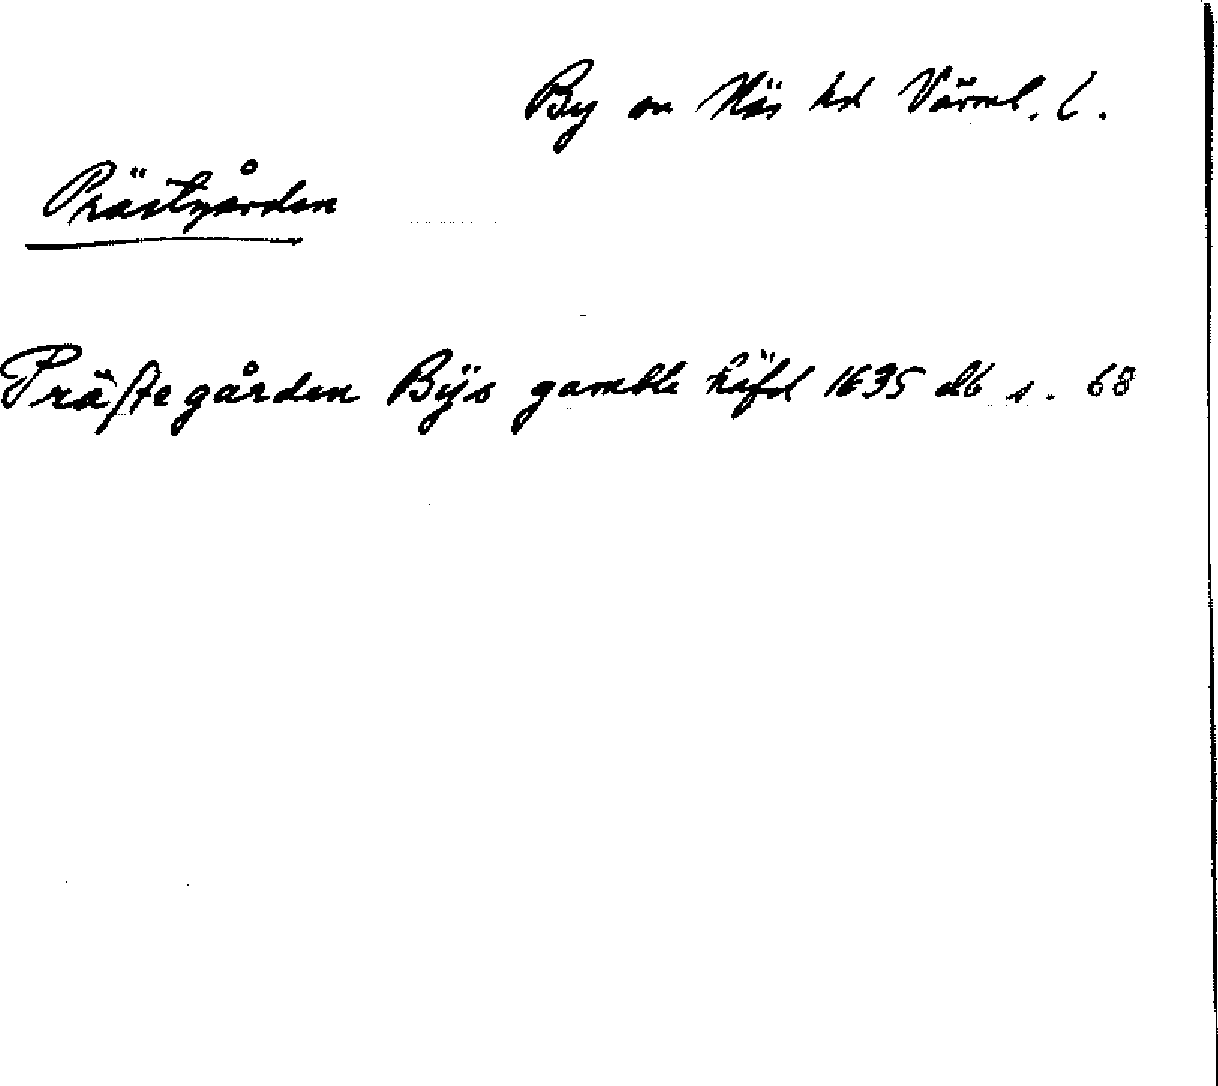 By sn Näs hd Värml. l.
Prästgården
Prästegården Bÿs gamble häfd 1635 db s. 68